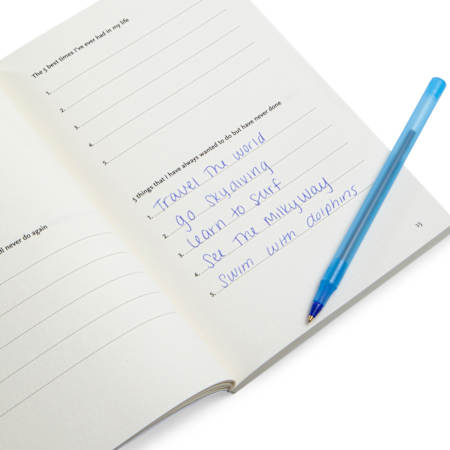 The 5 best times I've ever had in my life
1.
2.
3.
4.
5.
5 things that I have always wanted to do but have never done
1. Travel The world
2. go skydiving
3. Learn to surf
4. See The Milky Way
5. Swim with dolphins
15
never do again